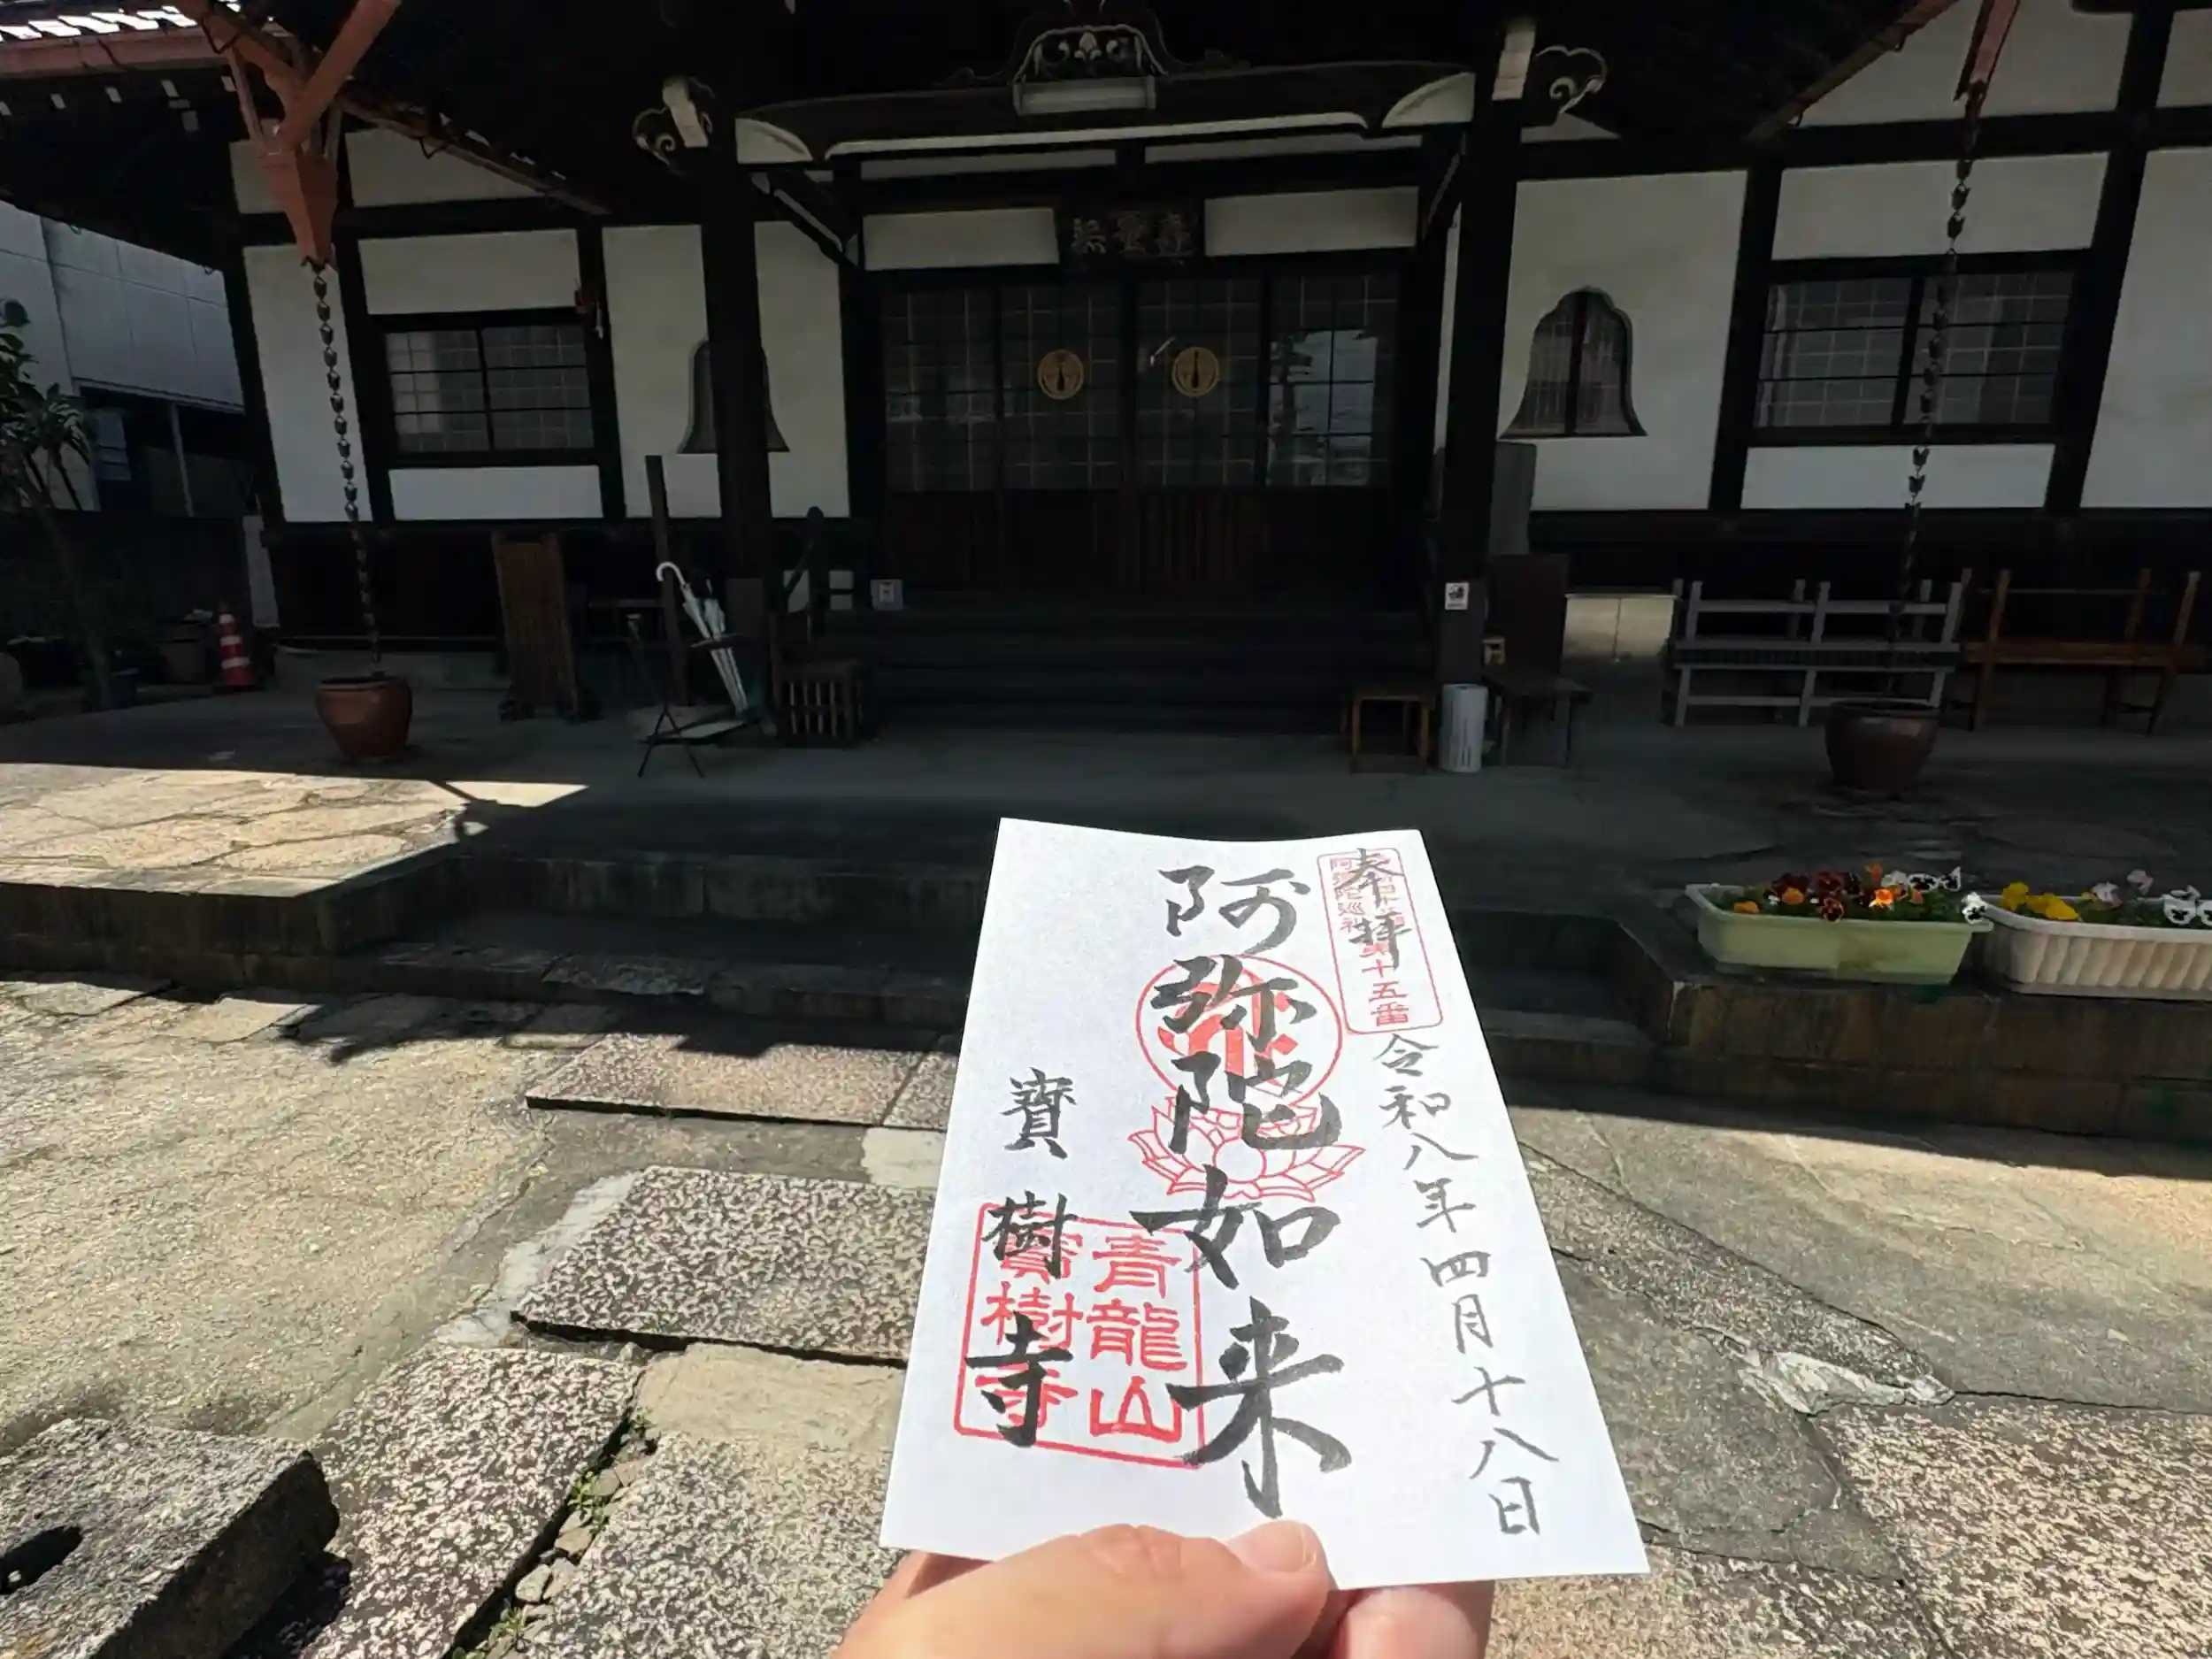 奉拝
十五番
令和八年四月十八日
阿弥陀如来
寶樹寺
青龍山
寶樹寺